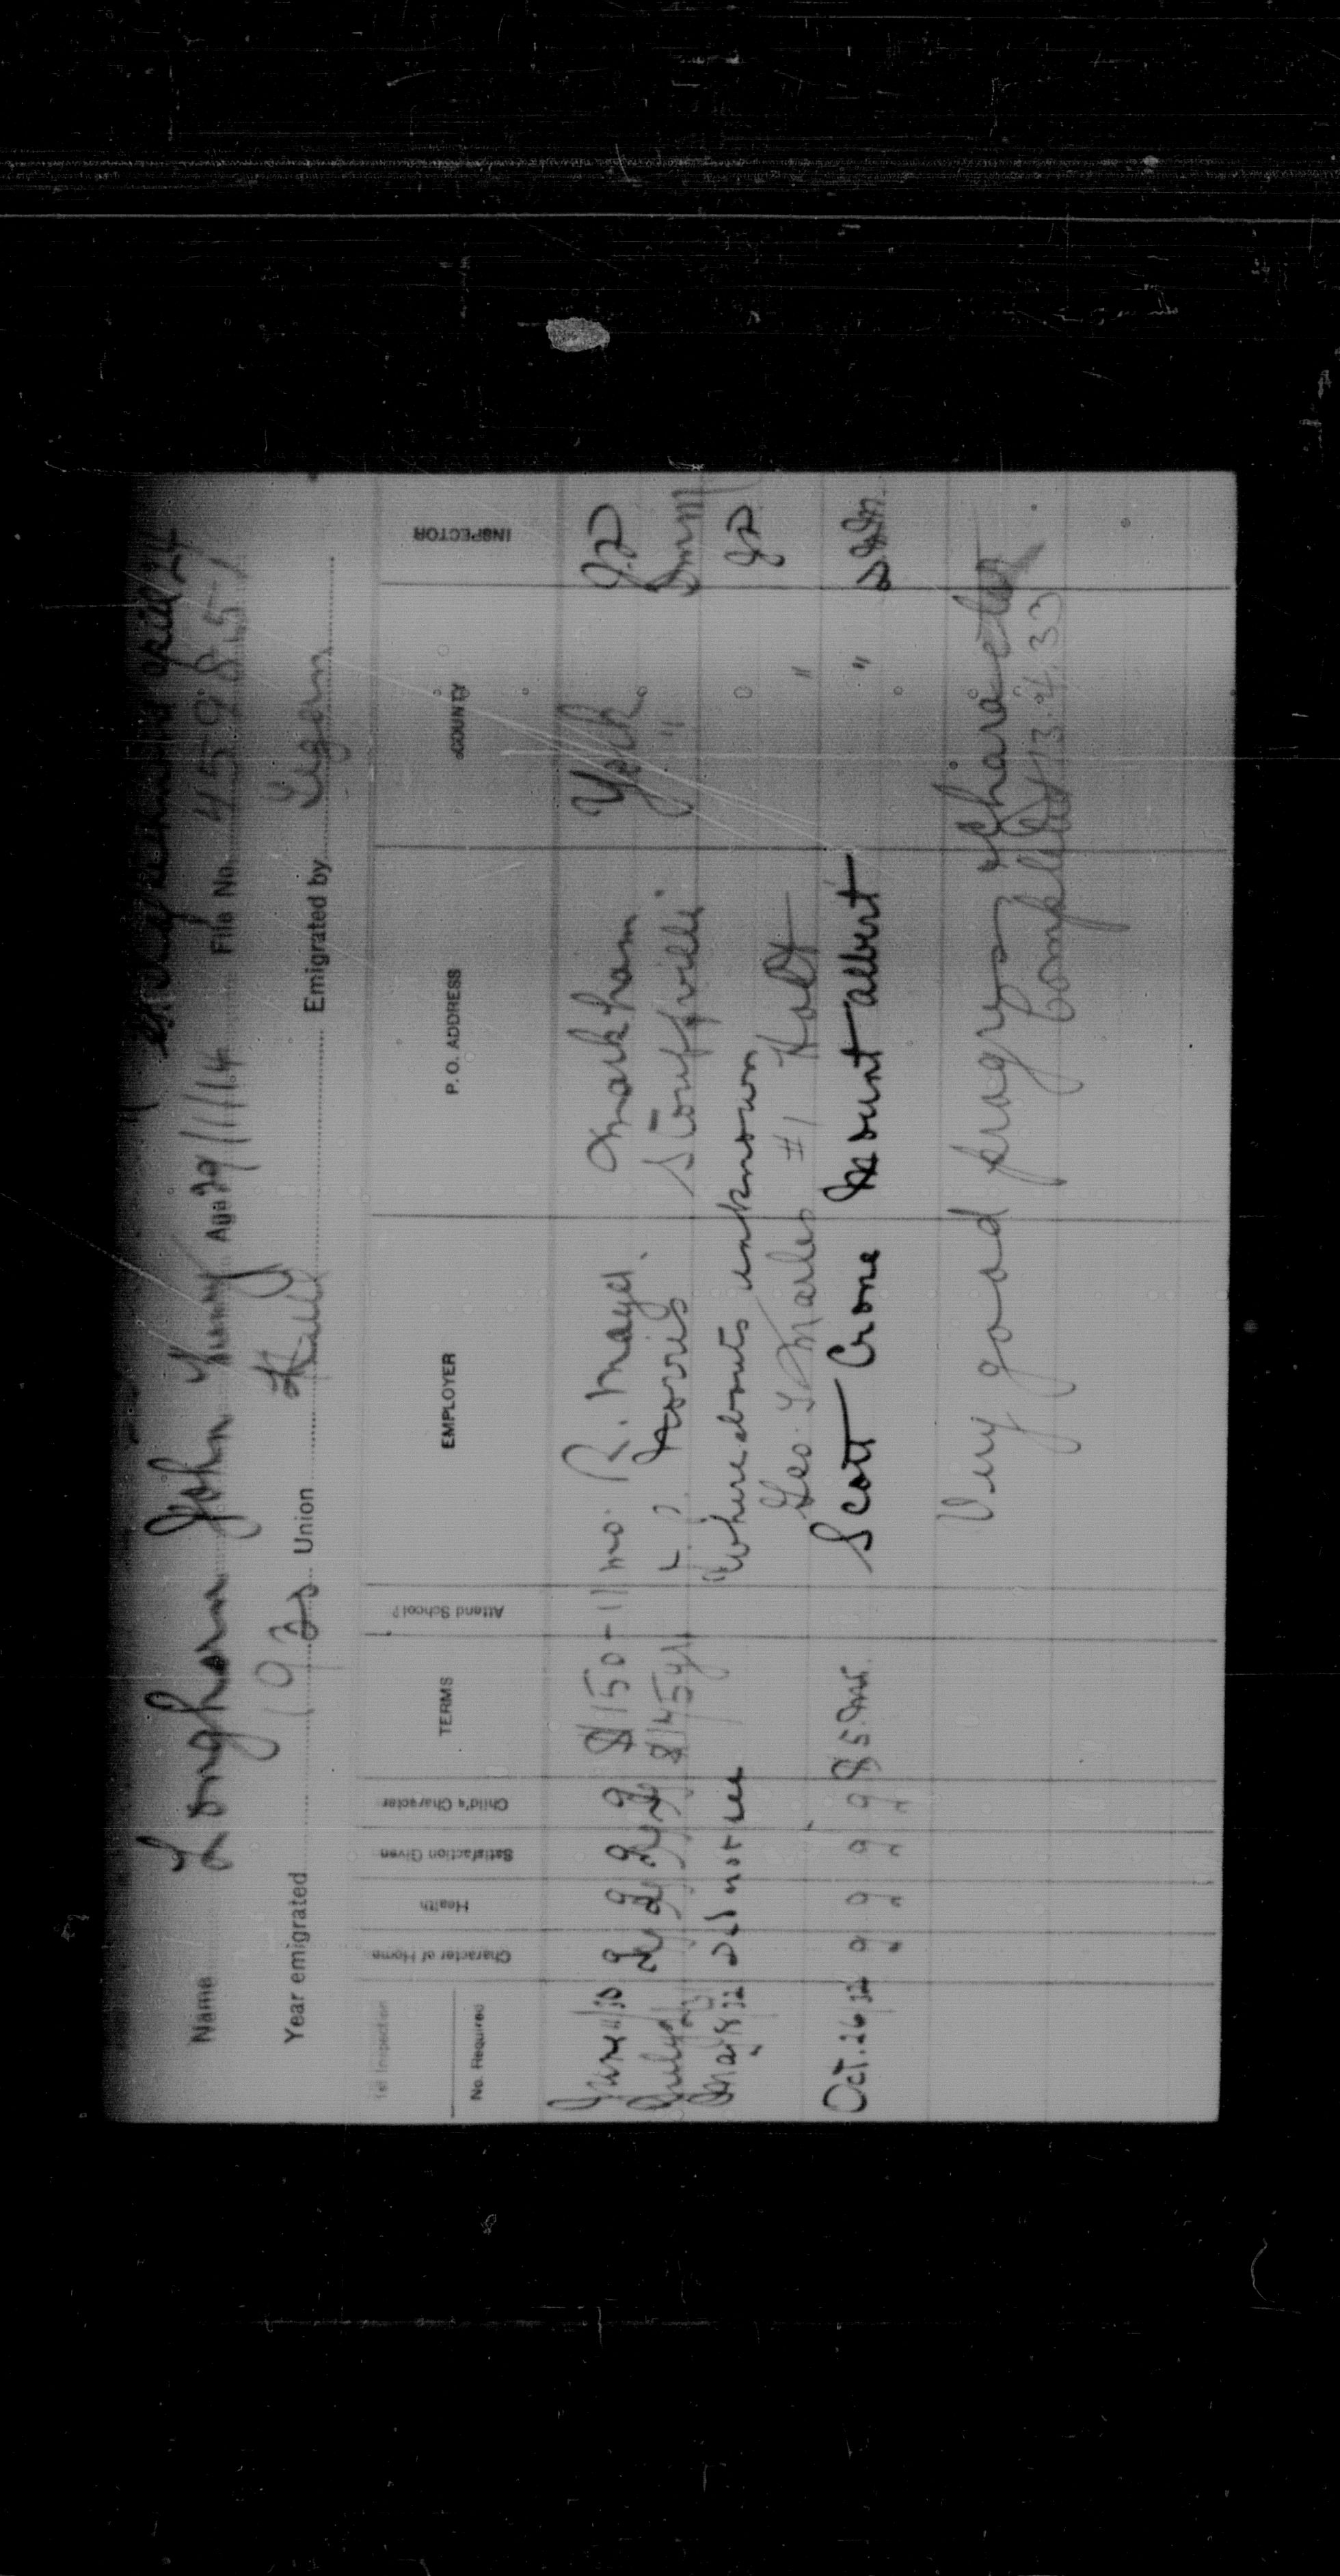 April 24
Name Longhorn John Age 29/1/14 File No. 45985
Year emigrated Union Hull Emigrated by
1st Inspection
No. Required Character of Home Health Satisfaction Given Child's Character TERMS Attend School? EMPLOYER P. O. ADDRESS COUNTY INSPECTOR
June 11/30 g g g g $150 - 11 mo. R. Mayd. Markham York
July $145 yr Norris Stouffville "
Mar 8/32 did not see "Whereabouts unknown
Geo. Marles #1 Holt "
Oct. 26/32 g g g g $5. mo. Scott Crone Mount Albert "
Very good progress & character
Completed 13.4.33